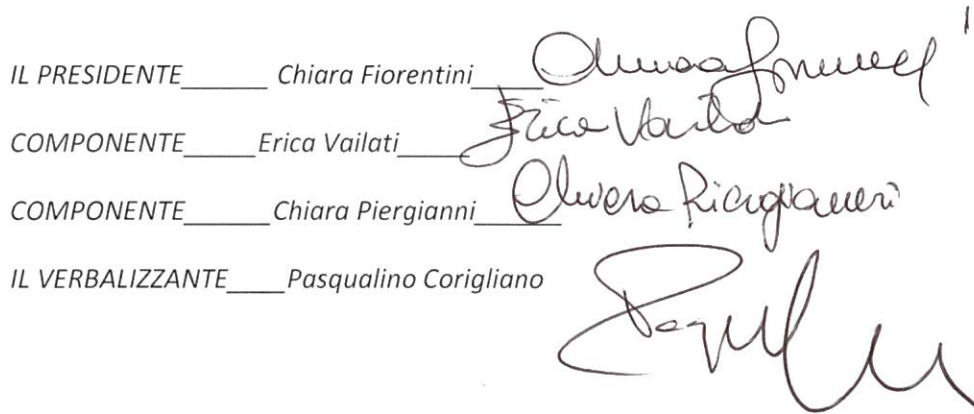 IL PRESIDENTE______ Chiara Fiorentini_____
COMPONENTE_____Erica Vailati_____ Erica Vailati
COMPONENTE______Chiara Piergianni______ Chiara Piergianni
IL VERBALIZZANTE____Pasqualino Corigliano